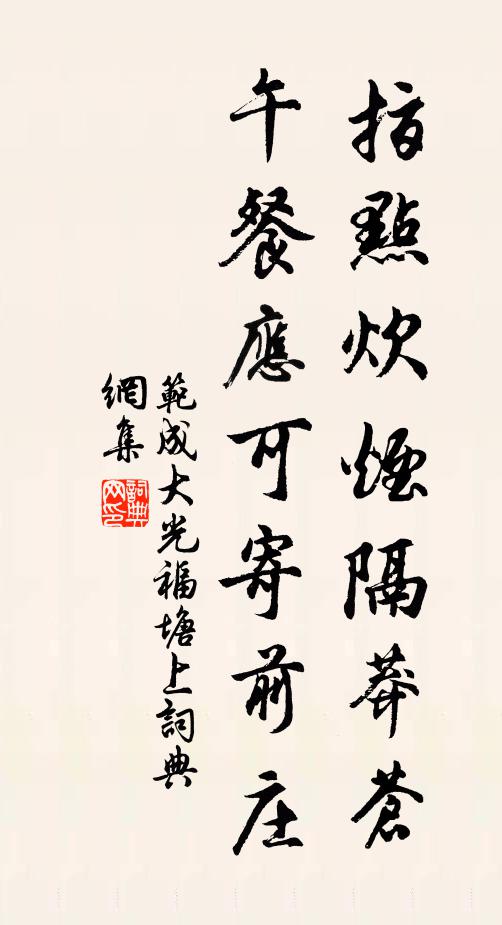 指點炊煙隔莽蒼
午餐應可寄前庄
範成大光福塘上詞典
網集
詞典
网印